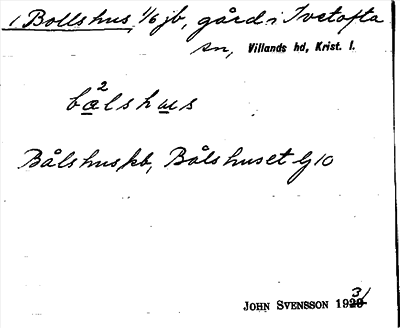 1 Bollshus, 1/6 jb, gård i Ivetofta
sn, Villands hd, Krist. l.
bo̲²lshu̲s
Bålshus kb, Bålshuset G 10
JOHN SVENSSON 1931